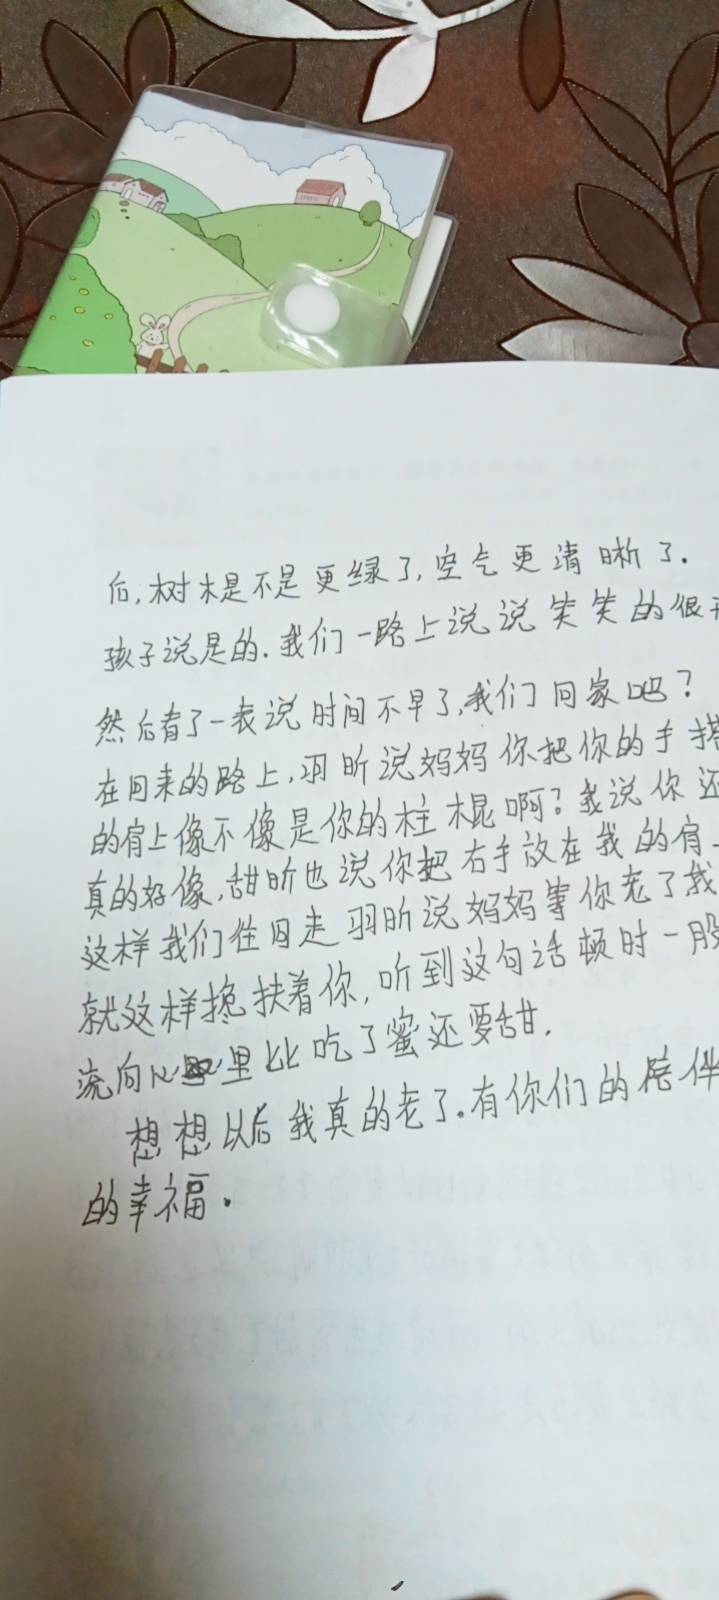 后,树木是不是更绿了,空气更清晰了.
孩子说是的.我们一路上说说笑笑的很
然后看了一表说时间不早了,我们回家吧?
在回来的路上,羽昕说妈妈你把你的手搭
的肩上像不像是你的柱棍啊?我说你还
真的好像,甜昕也说你把右手放在我的肩
这样我们住回走羽昕说妈妈等你老了我
就这样搀扶着你,听到这句话顿时一股
流向心里比吃了蜜还要甜.
想想以后我真的老了。有你们的陪伴
的幸福.